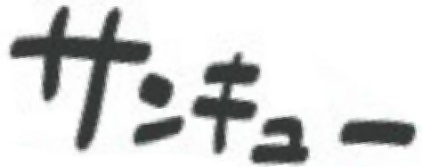 サンキュー